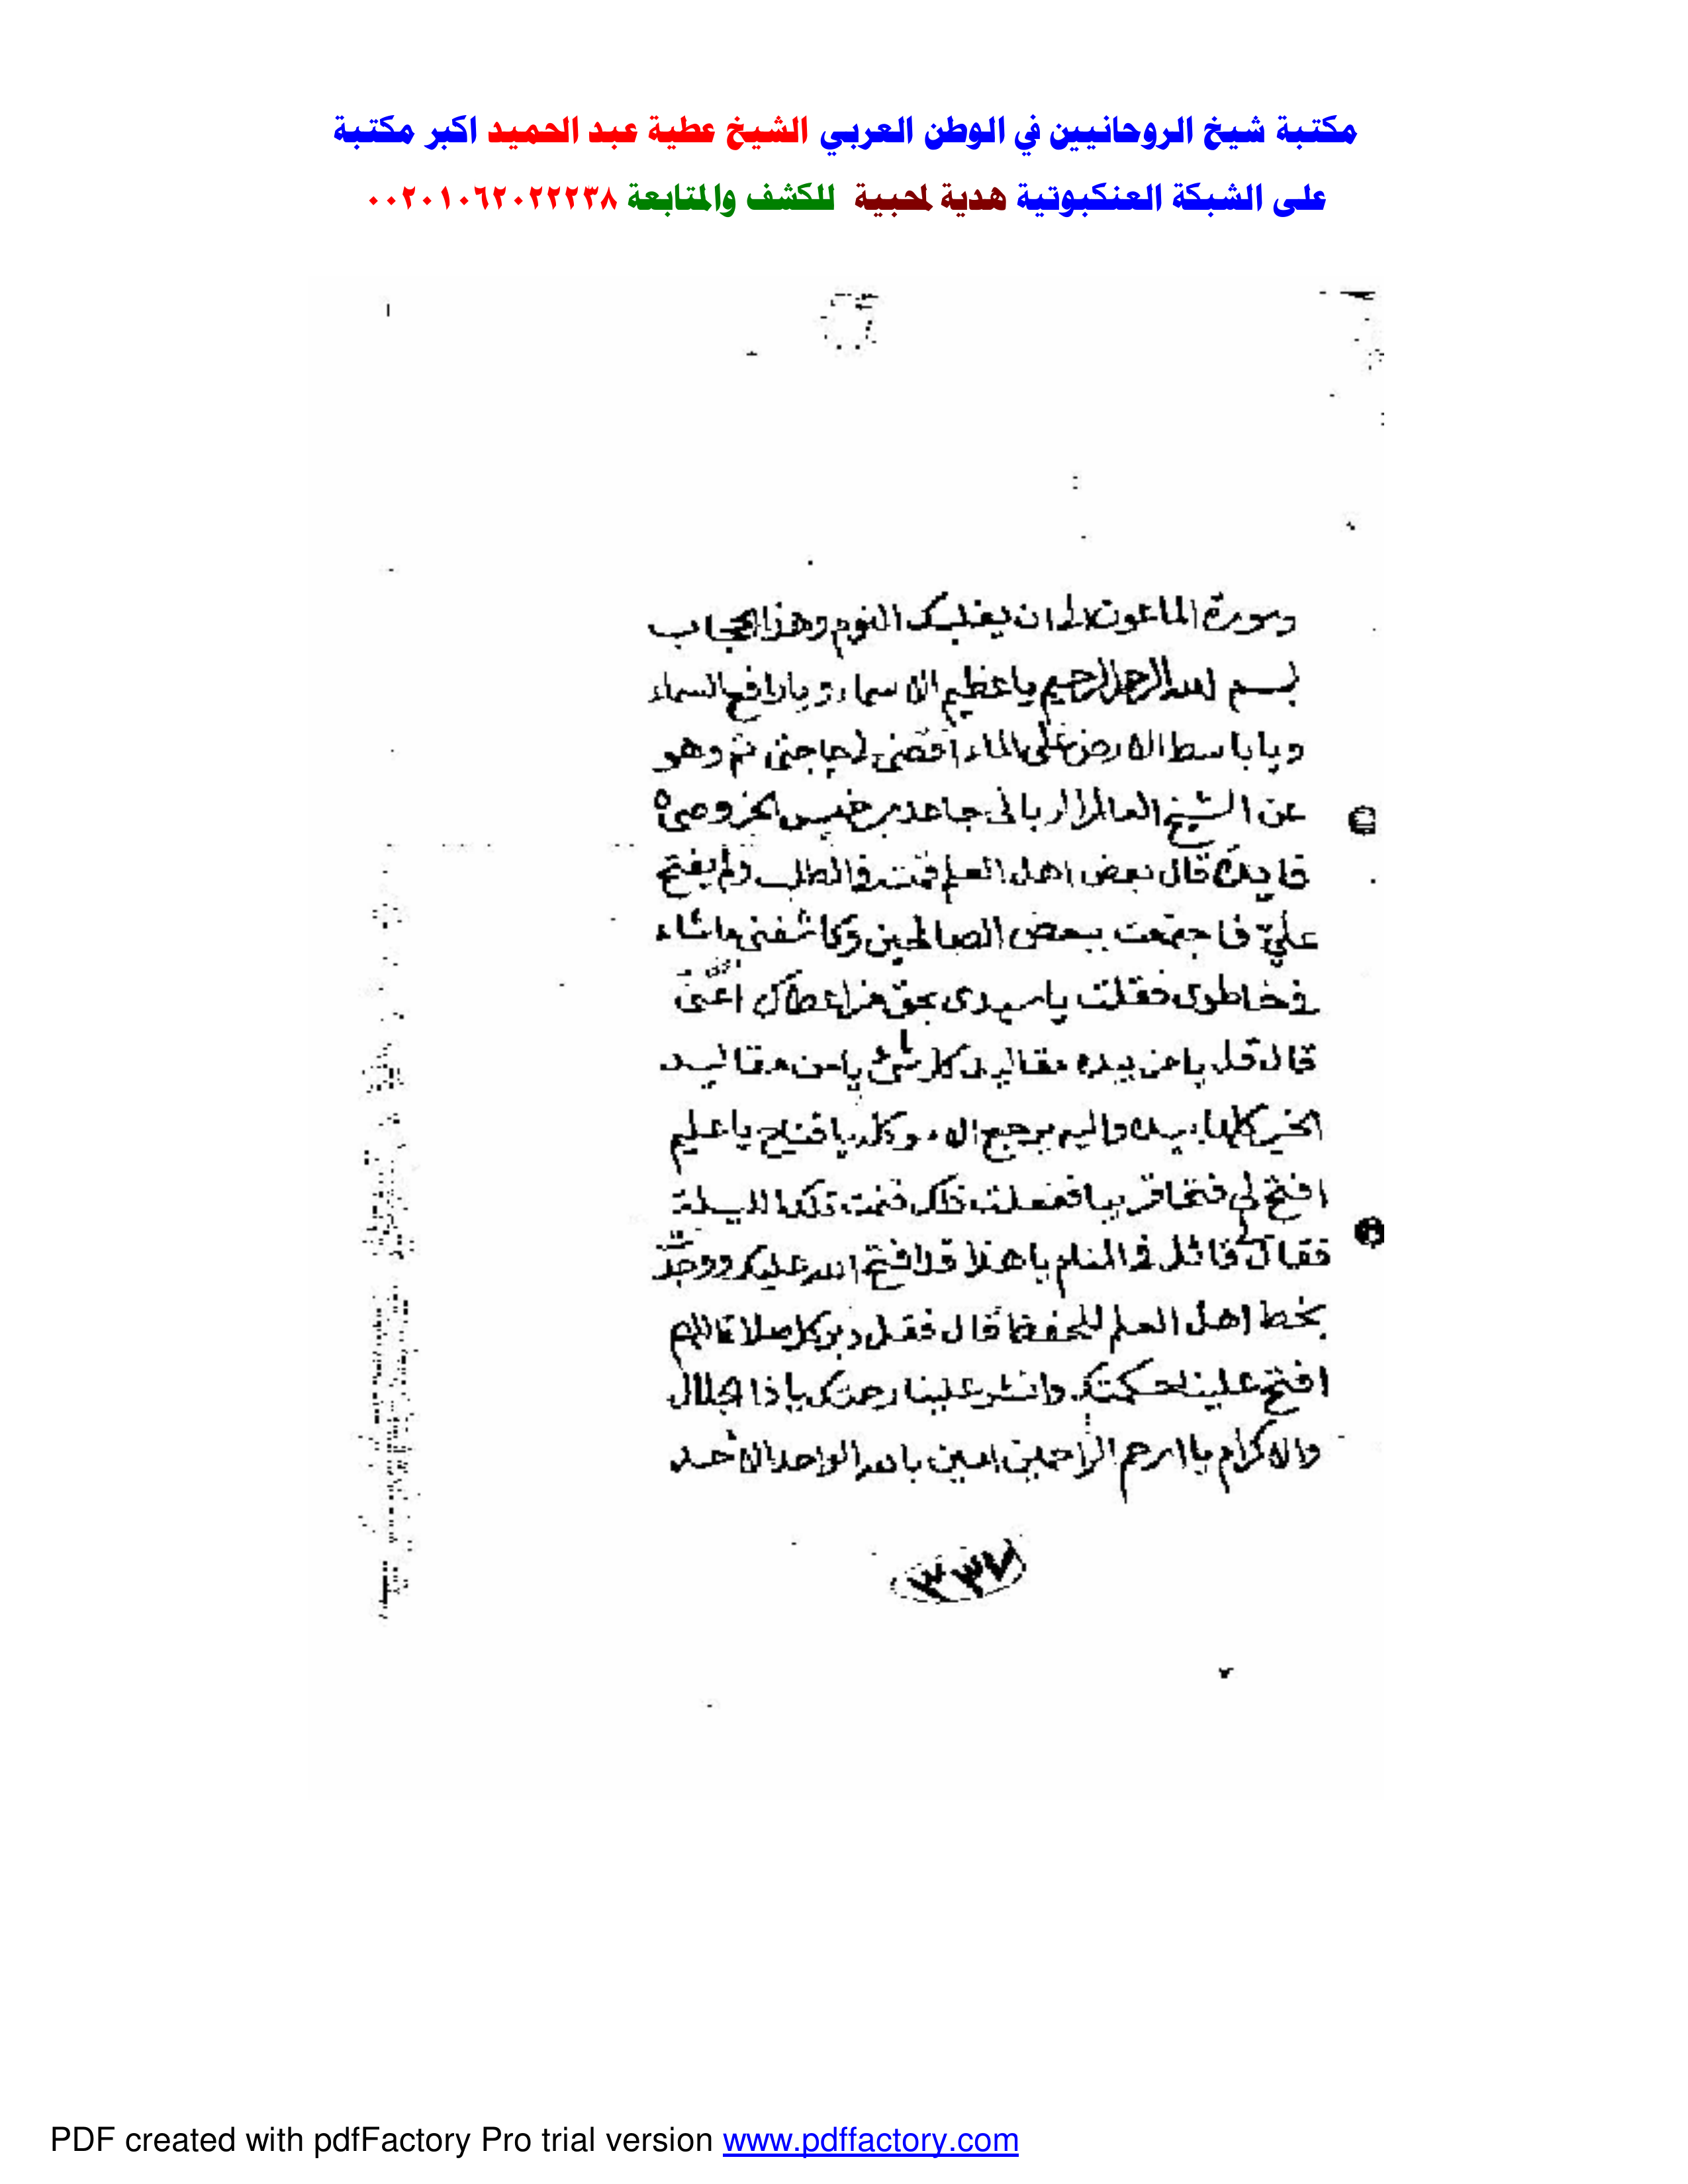 مكتبة شيخ الروحانيين في الوطن العربي الشيخ عطية عبد الحميد اكبر مكتبة
على الشبكة العنكبوتية هدية لمحبية للكشف والمتابعة ٠٠٢٠١٠٦٢٠٢٢٢٣٨
وسورة الماعون الى ان يغلبك النوم وهذا الحجاب
بسم الله الرحمن الرحيم يا عظيم الاسماء ويا رافع السماء
ويا باسط الارض على الماء اقضى لى حاجتى تم وهو
عن الشيخ العالم الربانى جاعد بن خميس الخروصى
فايدة قال بعض اهل العلم قمت فى الطلب ولم يفتح
علي فاجتمعت ببعض الصالحين وكاشفنى ماشاء
فى خاطرى فقلت ياسيدى بحق من اعطاك
قال قل يا من بيده مقاليد كل شئ يا من مقاليد
الخير كلها بيده واليه يرجع الامر كله يا فتاح يا عليم
افتح لى فتحا قريبا ففعلت ذلك فنمت تلك الليلة
فقال قائل فى المنام يا هذا قد افتح الله عليك ووجدت
بخط اهل العلم للحفظ قال فقل دبر كل صلاة اللهم
افتح علينا حكمتك وانشر علينا رحمتك يا ذا الجلال
والاكرام يا ارحم الراحمين امين يا الله الواحد الاحد
٣٣٧
PDF created with pdfFactory Pro trial version www.pdffactory.com